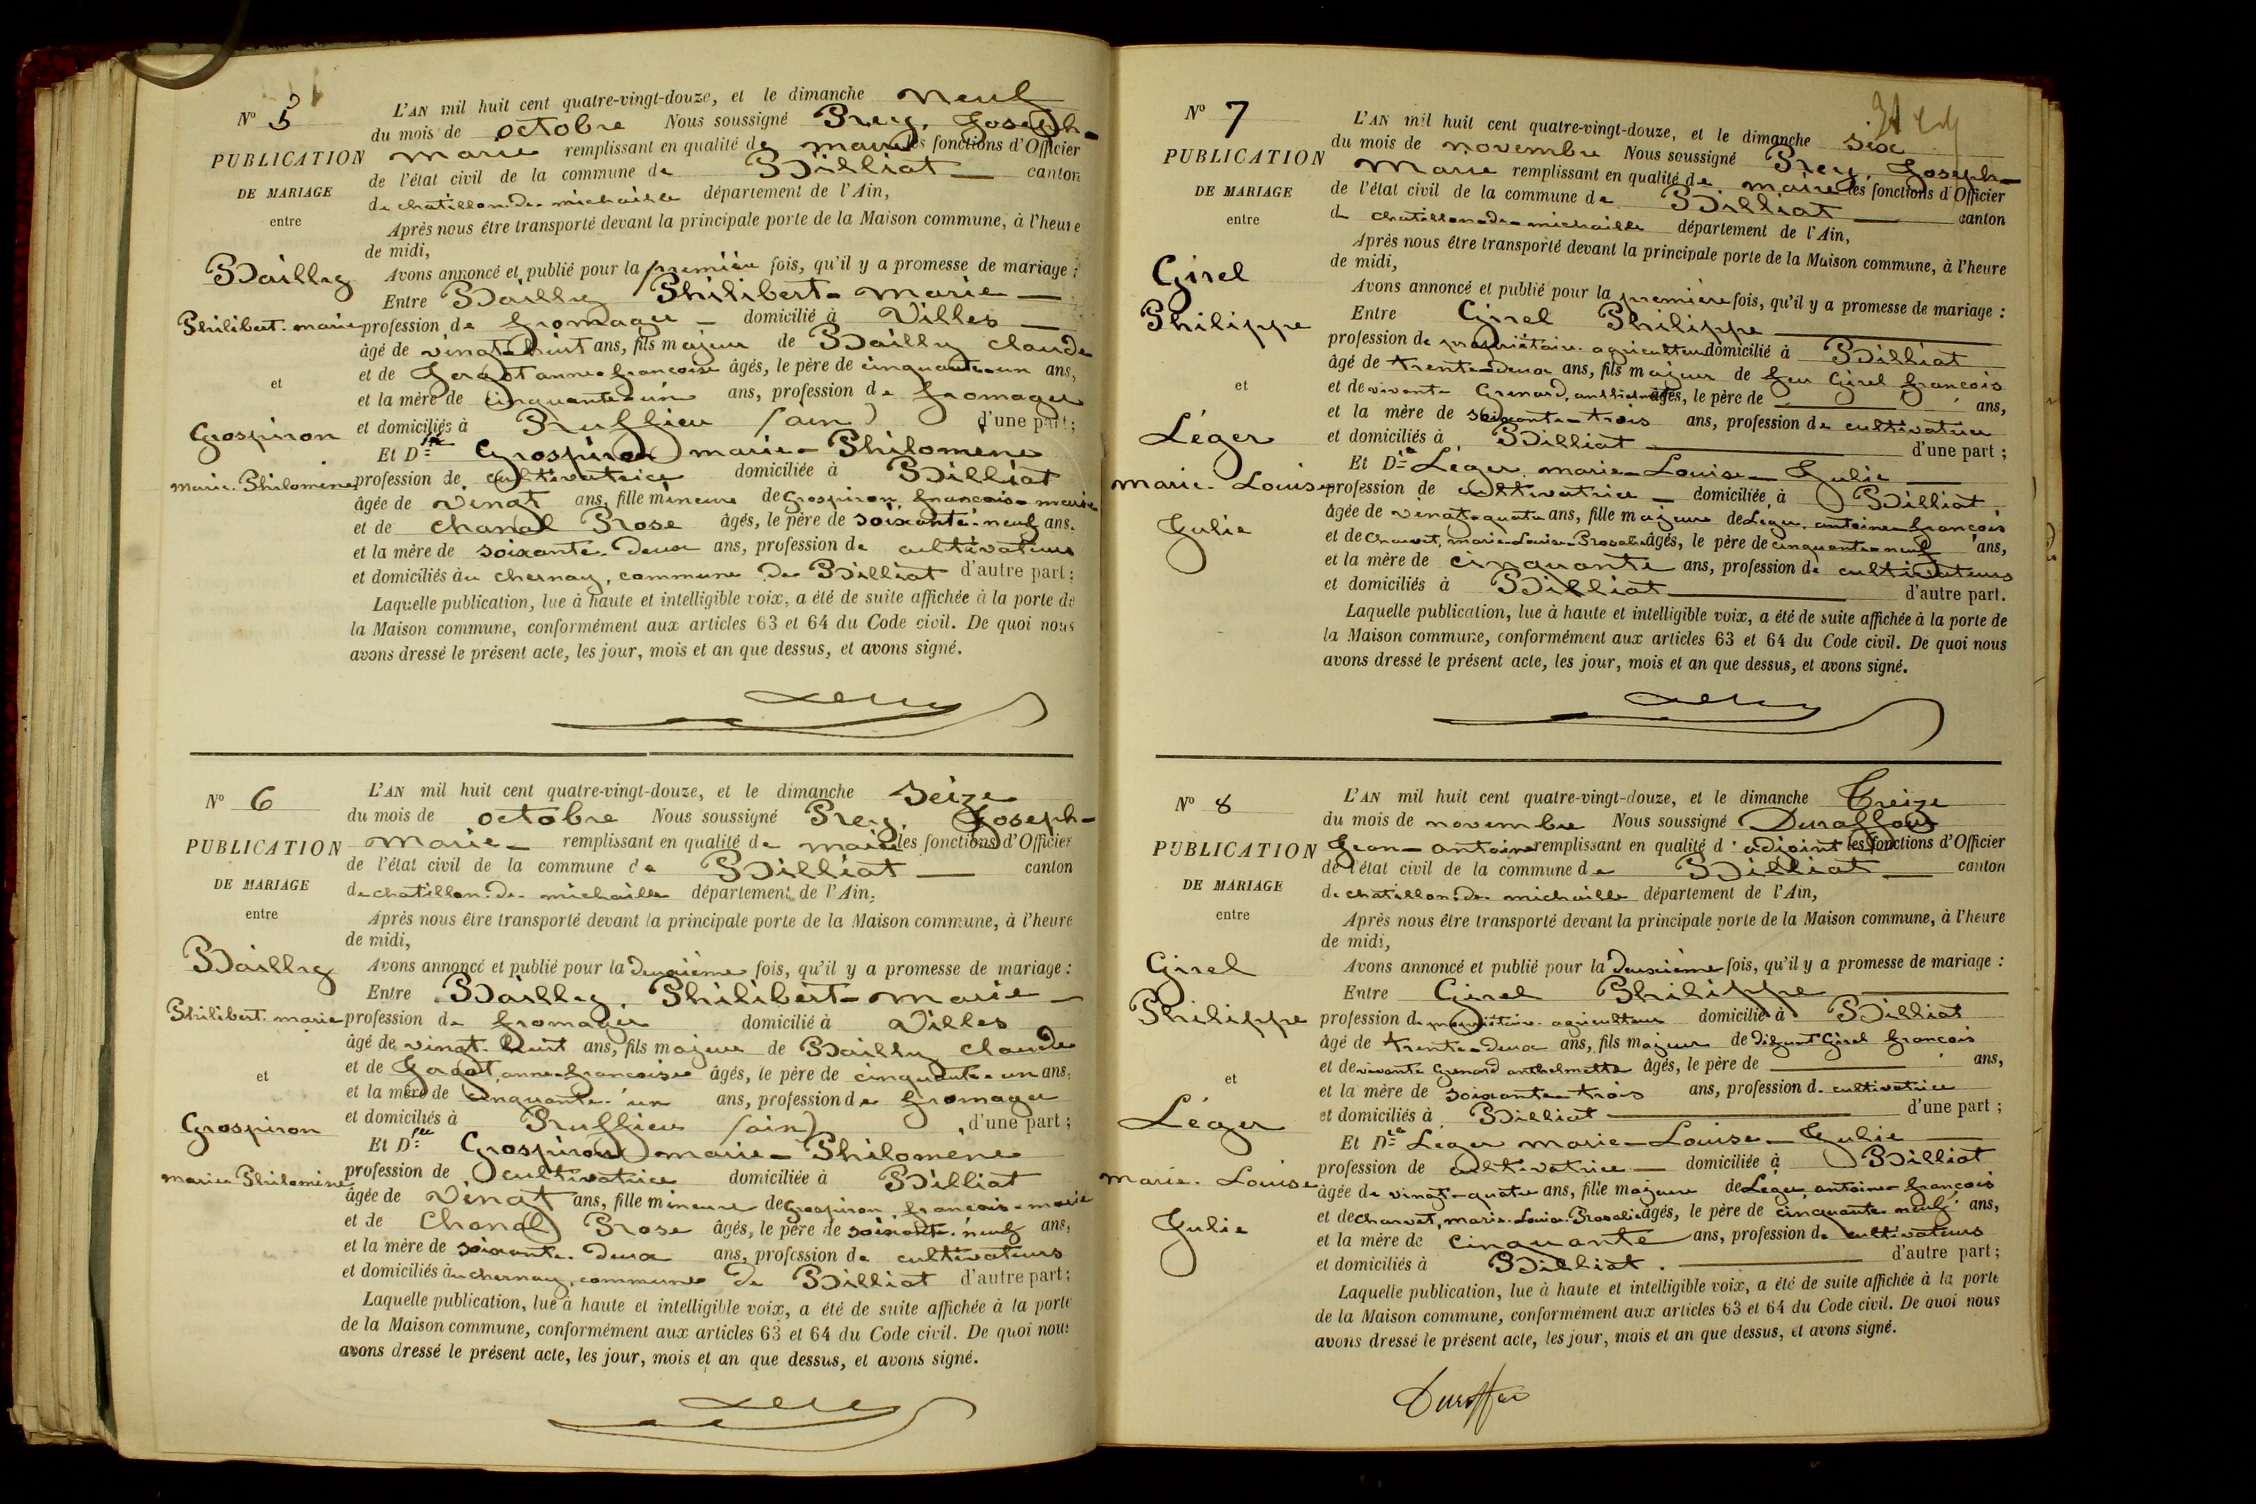 N° 5
PUBLICATION
DE MARIAGE
entre
Bailly
Philibert-marie
et
Grospiron
marie-Philomène
L'AN mil huit cent quatre-vingt-douze, et le dimanche neuf
du mois de octobre Nous soussigné Prey, Joseph-
marie remplissant en qualité de maire les fonctions d'Officier
de l'état civil de la commune de Billiat canton
de chatillon-de-michaille département de l'Ain,
Après nous être transporté devant la principale porte de la Maison commune, à l'heure
de midi,
Avons annoncé et publié pour la première fois, qu'il y a promesse de mariage :
Entre Bailly Philibert-marie
profession de fromager domicilié à Villes
âgé de vingt-huit ans, fils majeur de Bailly claude
et de anne-françoise âgés, le père de cinquante-un ans,
et la mère de cinquante-un ans, profession de fromager
et domiciliés à Ruffieu (ain) d'une part;
Et Dlle Grospiron marie-Philomène
profession de cultivatrice domiciliée à Billiat
âgée de vingt ans, fille mineure de Grospiron, françois-marie
et de Chanal Rose âgés, le père de soixante-neuf ans.
et la mère de soixante-deux ans, profession de cultivateurs
et domiciliés à u chernay, commune de Billiat d'autre part;
Laquelle publication, lue à haute et intelligible voix, a été de suite affichée à la porte de
la Maison commune, conformément aux articles 63 et 64 du Code civil. De quoi nous
avons dressé le présent acte, les jour, mois et an que dessus, et avons signé.
Prey
N° 6
PUBLICATION
DE MARIAGE
entre
Bailly
Philibert-marie
et
Grospiron
marie-Philomène
L'AN mil huit cent quatre-vingt-douze, et le dimanche seize
du mois de octobre Nous soussigné Prey, Joseph-
marie- remplissant en qualité de maire les fonctions d'Officier
de l'état civil de la commune de Billiat canton
de chatillon-de-michaille département de l'Ain,
Après nous être transporté devant la principale porte de la Maison commune, à l'heure
de midi,
Avons annoncé et publié pour la deuxième fois, qu'il y a promesse de mariage :
Entre Bailly, Philibert-marie
profession de fromager domicilié à Villes
âgé de vingt-huit ans, fils majeur de Bailly claude
et de anne-françoise âgés, le père de cinquante-un ans,
et la mère de cinquante-un ans, profession de fromager
et domiciliés à Ruffieu (ain) d'une part;
Et Dlle Grospiron marie-Philomène
profession de cultivatrice domiciliée à Billiat
âgée de vingt ans, fille mineure de Grospiron, françois-marie
et de Chanal Rose âgés, le père de soixante-neuf ans,
et la mère de soixante-deux ans, profession de cultivateurs
et domiciliés à u chernay, commune de Billiat d'autre part;
Laquelle publication, lue à haute et intelligible voix, a été de suite affichée à la porte
de la Maison commune, conformément aux articles 63 et 64 du Code civil. De quoi nous
avons dressé le présent acte, les jour, mois et an que dessus, et avons signé.
Prey
N° 7
PUBLICATION
DE MARIAGE
entre
Girel
Philippe
et
Léger
marie-Louise
Julie
L'AN mil huit cent quatre-vingt-douze, et le dimanche six
du mois de novembre Nous soussigné Prey, Joseph-
Marie remplissant en qualité de maire les fonctions d'Officier
de l'état civil de la commune de Billiat canton
de chatillon-de-michaille département de l'Ain,
Après nous être transporté devant la principale porte de la Maison commune, à l'heure
de midi,
Avons annoncé et publié pour la première fois, qu'il y a promesse de mariage :
Entre Girel Philippe
profession de propriétaire-agriculteur domicilié à Billiat
âgé de trente-deux ans, fils majeur de feu Girel françois
et de vivante Grenard, anthelmette âgés, le père de ans,
et la mère de soixante-trois ans, profession de cultivatrice
et domiciliés à Billiat d'une part;
Et Dlle Léger, marie-Louise-Julie
profession de cultivatrice domiciliée à Billiat
âgée de vingt-quatre ans, fille majeure de Léger, antoine-françois
et de Charvet, marie-Louise-Rosalie âgés, le père de cinquante-neuf ans,
et la mère de cinquante ans, profession de cultivateurs
et domiciliés à Billiat d'autre part.
Laquelle publication, lue à haute et intelligible voix, a été de suite affichée à la porte de
la Maison commune, conformément aux articles 63 et 64 du Code civil. De quoi nous
avons dressé le présent acte, les jour, mois et an que dessus, et avons signé.
Prey
N° 8
PUBLICATION
DE MARIAGE
entre
Girel
Philippe
et
Léger
marie-Louise
Julie
L'AN mil huit cent quatre-vingt-douze, et le dimanche Treize
du mois de novembre Nous soussigné Duraffour
Jean-antoine remplissant en qualité d'adjoint les fonctions d'Officier
de l'état civil de la commune de Billiat canton
de chatillon-de-michaille département de l'Ain,
Après nous être transporté devant la principale porte de la Maison commune, à l'heure
de midi,
Avons annoncé et publié pour la deuxième fois, qu'il y a promesse de mariage :
Entre Girel Philippe
profession de propriétaire-agriculteur domicilié à Billiat
âgé de trente-deux ans, fils majeur de défunt Girel françois
et de vivante Grenard anthelmette âgés, le père de ans,
et la mère de soixante-trois ans, profession de cultivatrice
et domiciliés à Billiat d'une part;
Et Dlle Léger marie-Louise-Julie
profession de cultivatrice domiciliée à Billiat
âgée de vingt-quatre ans, fille majeure de Léger, antoine-françois
et de Charvet, marie-Louise-Rosalie âgés, le père de cinquante-neuf ans,
et la mère de cinquante ans, profession de cultivateurs
et domiciliés à Billiat. d'autre part;
Laquelle publication, lue à haute et intelligible voix, a été de suite affichée à la porte
de la Maison commune, conformément aux articles 63 et 64 du Code civil. De quoi nous
avons dressé le présent acte, les jour, mois et an que dessus, et avons signé.